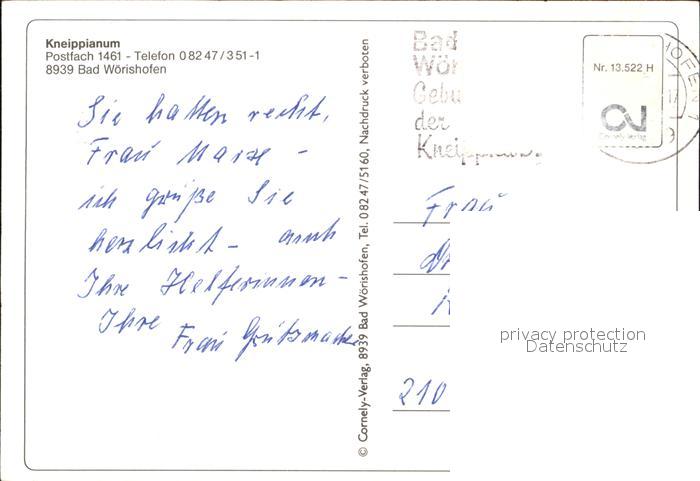 Kneippianum
Postfach 1461 - Telefon 0 82 47 / 3 51 -1
8939 Bad Wörishofen
Sie hatten recht,
Frau
ich grüße Sie
herzlichst - auch
Ihre Helferinnen -
Ihre
Frau Grützmacher
© Cornely-Verlag, 8939 Bad Wörishofen, Tel. 0 82 47/51 60, Nachdruck verboten
Bad
Wör
Gebu
der
Kneipp
Nr. 13.522 H
Cornely-Verlag
HOFEN 1
Frau
210
privacy protection
Datenschutz